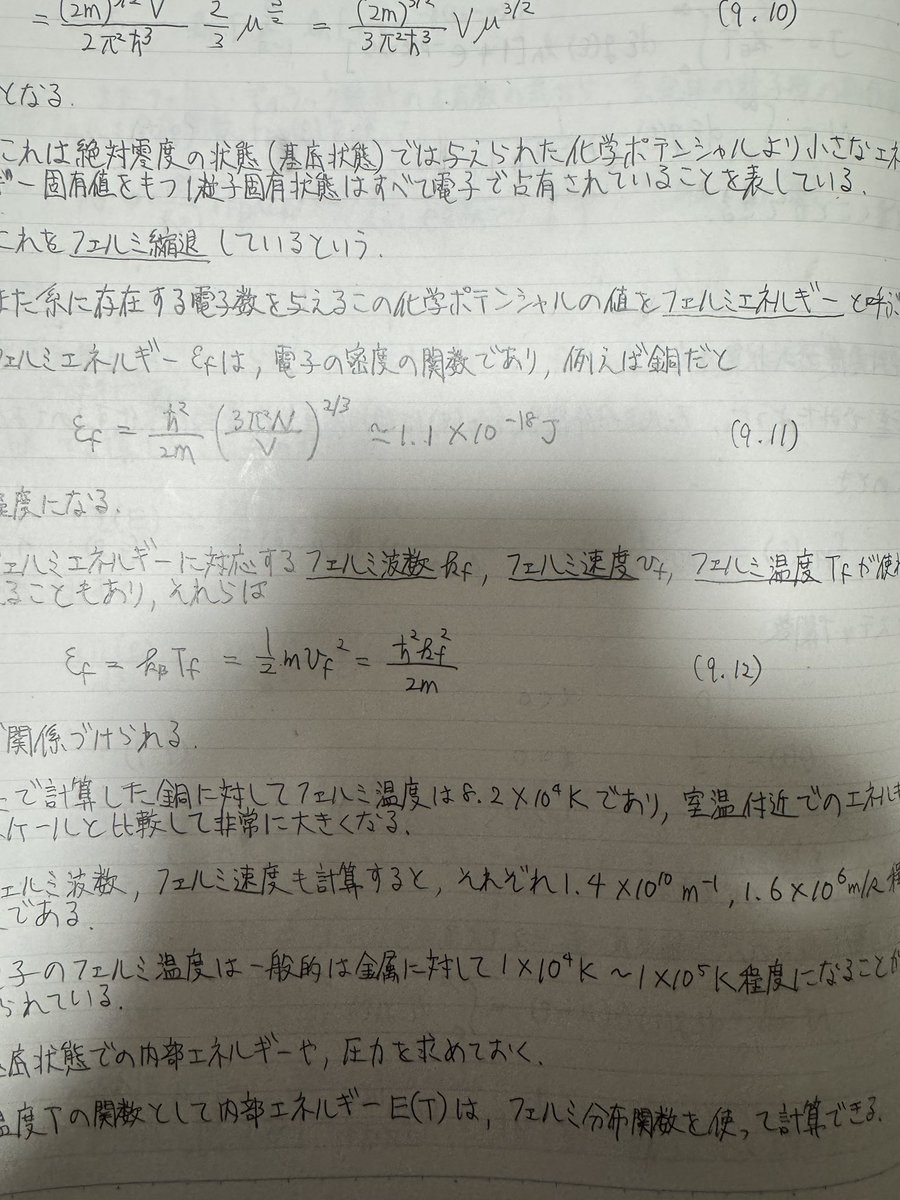 = (2m)^{3/2} V / 2π²ħ³ 2/3 μ^{3/2} = (2m)^{3/2} / 3π²ħ³ Vμ^{3/2} (9.10)
となる.
これは絶対零度の状態(基底状態)では与えられた化学ポテンシャルより小さなエネ
ギー固有値をもつ1粒子固有状態はすべて電子で占有されていることを表している.
これをフェルミ縮退しているという.
また系に存在する電子数を与えるこの化学ポテンシャルの値をフェルミエネルギーと呼ぶ
フェルミエネルギーεfは, 電子の密度の関数であり, 例えば銅だと
εf = ħ²/2m (3π²N/V)^{2/3} ≃ 1.1×10^{-18} J (9.11)
程度になる.
フェルミエネルギーに対応するフェルミ波数kf, フェルミ速度vf, フェルミ温度Tfが使わ
ることもあり, それらは
εf = kBTf = 1/2 mvf² = ħ²kf²/2m (9.12)
関係づけられる.
で計算した銅に対してフェルミ温度は8.2×10⁴Kであり, 室温付近でのエネルギ
スケールと比較して非常に大きくなる.
フェルミ波数, フェルミ速度も計算すると, それぞれ1.4×10¹⁰m⁻¹, 1.6×10⁶m/s程
である.
子のフェルミ温度は一般的は金属に対して1×10⁴K~1×10⁵K程度になることが
られている.
基底状態での内部エネルギーや, 圧力を求めておく.
温度Tの関数として内部エネルギーE(T)は, フェルミ分布関数を使って計算できる.